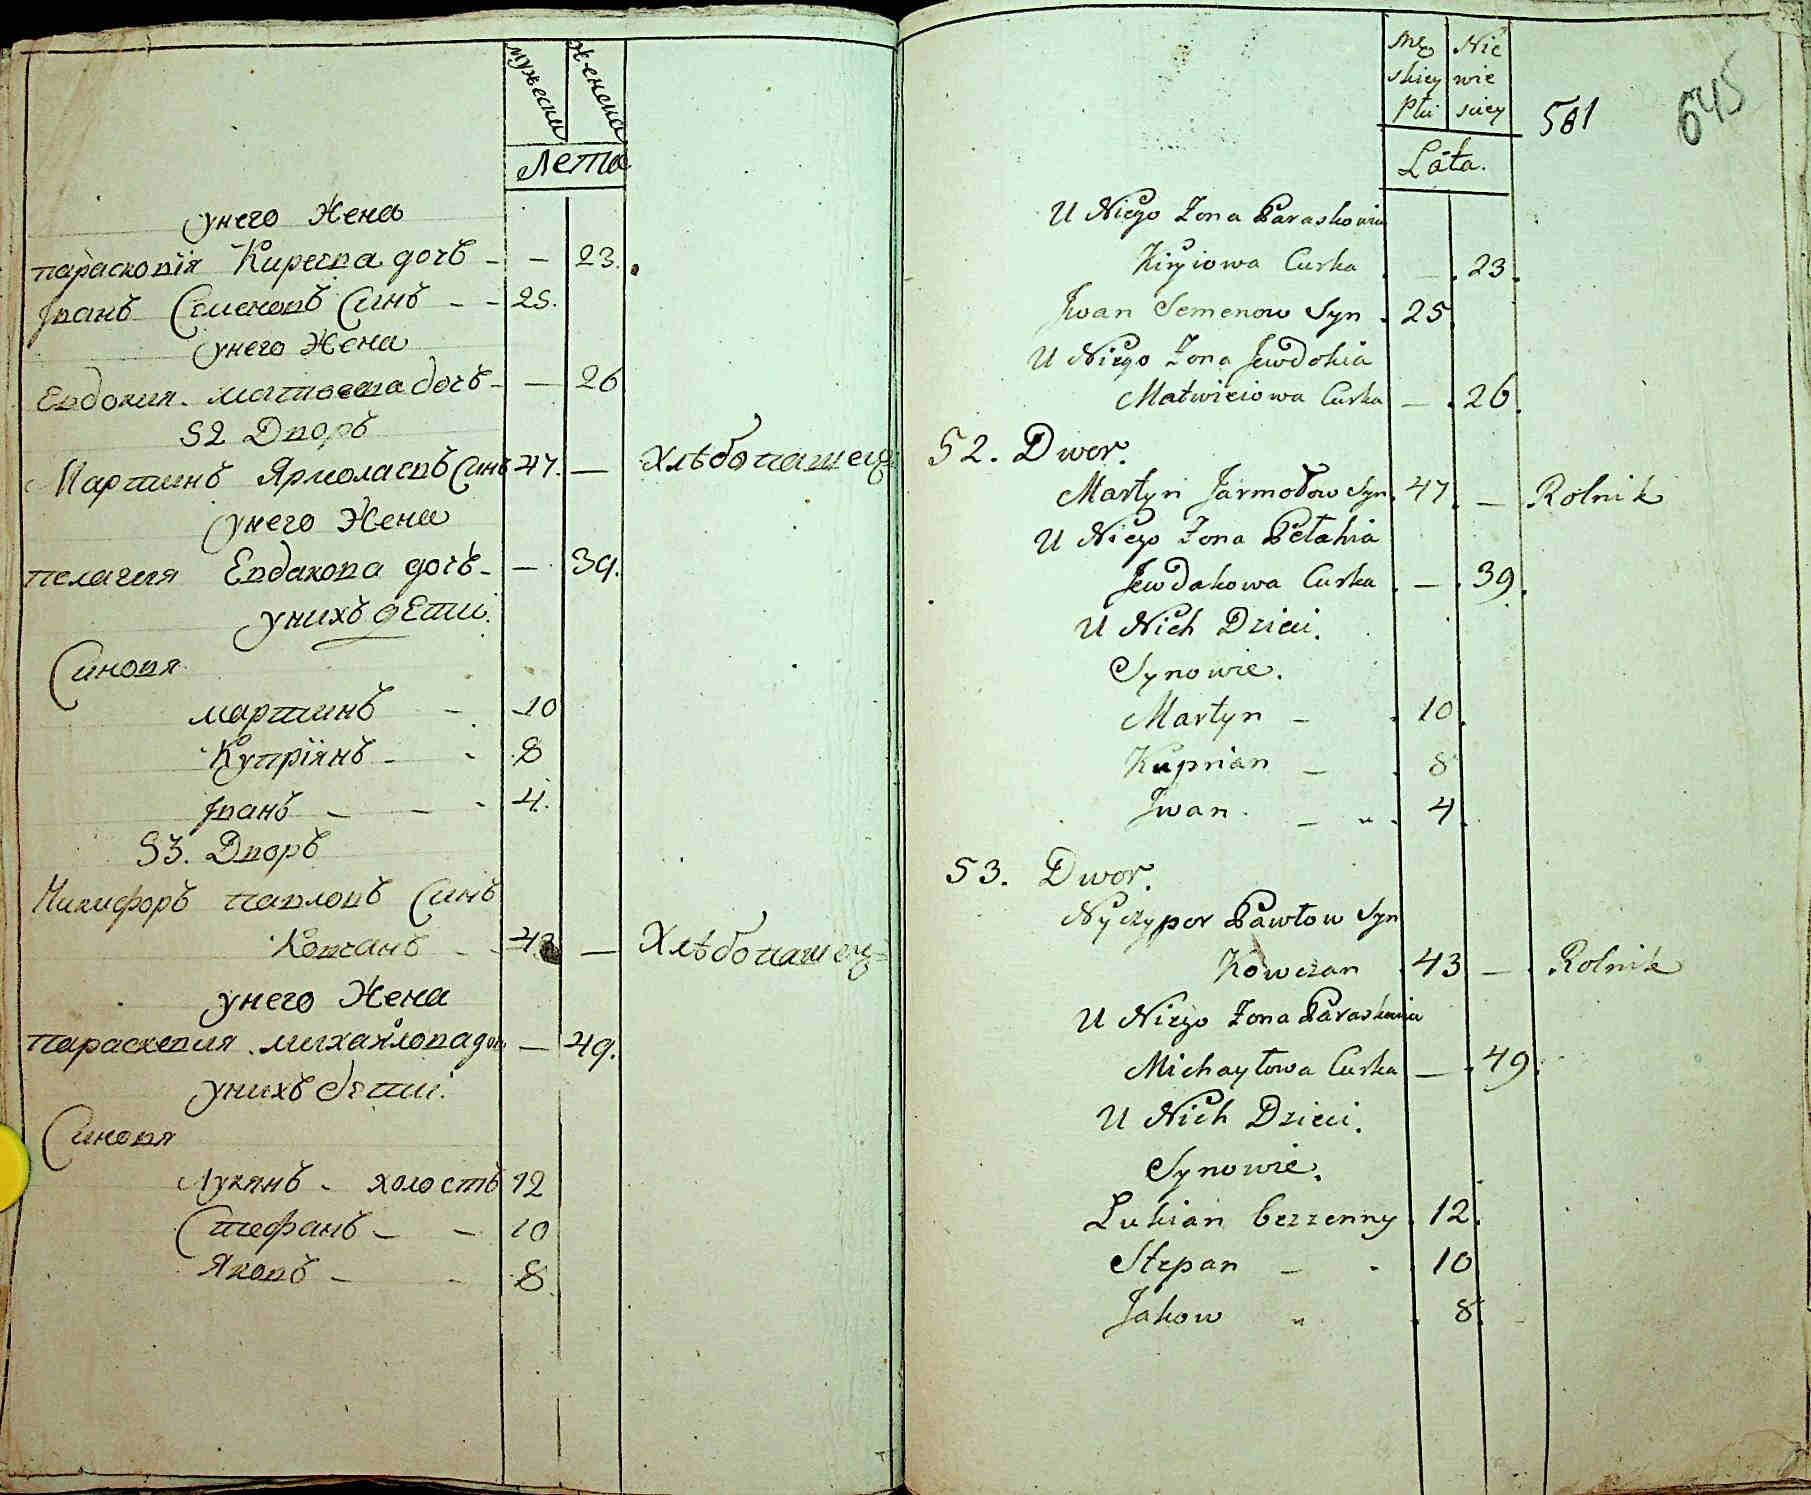 мужеска женска
Лета
унего Жена
параскопія Киреепа дочъ - - 23.
Іпанъ Семенопъ Синъ - - 25.
унего Жена
Епдокия матпеепа дочъ - - 26
52 Дпоръ
Мартинъ Ярмолаепъ Синъ 47. — Хлѣбопашецъ
унего Жена
пелагия Епдакопа дочъ - - 39.
унихъ дЕти.
Синопя
мартинъ - 10
Купріянъ - - 8
Іпанъ - - - 4.
53. Дпоръ
Никифоръ паплопъ Синъ
Копчанъ - - 43 — Хлѣбопашецъ
унего Жена
Параскепия михайлопа дочъ — 49.
унихъ дѣти.
Синопя
Лукянъ - холостъ 12
Стефанъ - - 10
Якопъ - - 8.
Mę Nie
skiey wie
Płci sciey
581
645
Lata.
U Niego Zona Paraskowia
Kiryiowa Curka - 23.
Jwan Semenow Syn 25
U Niego Zona Jewdokia
Matwieiowa Curka — 26.
52. Dwor.
Martyn Jarmołow Syn 47 — Rolnik
U Niego Zona Pełahia
Jewdakowa Curka — 39.
U Nich Dzieci.
Synowie.
Martyn - 10.
Kuprian - 8
Jwan - " 4.
53. Dwor.
Nyczypor Pawłow Syn
Kowczan 43 — Rolnik
U Niego Zona Paraskawia
Michayłowa Curka — 49.
U Nich Dzieci.
Synowie.
Lukian bezzenny 12.
Stepan - - 10
Jakow " 8.